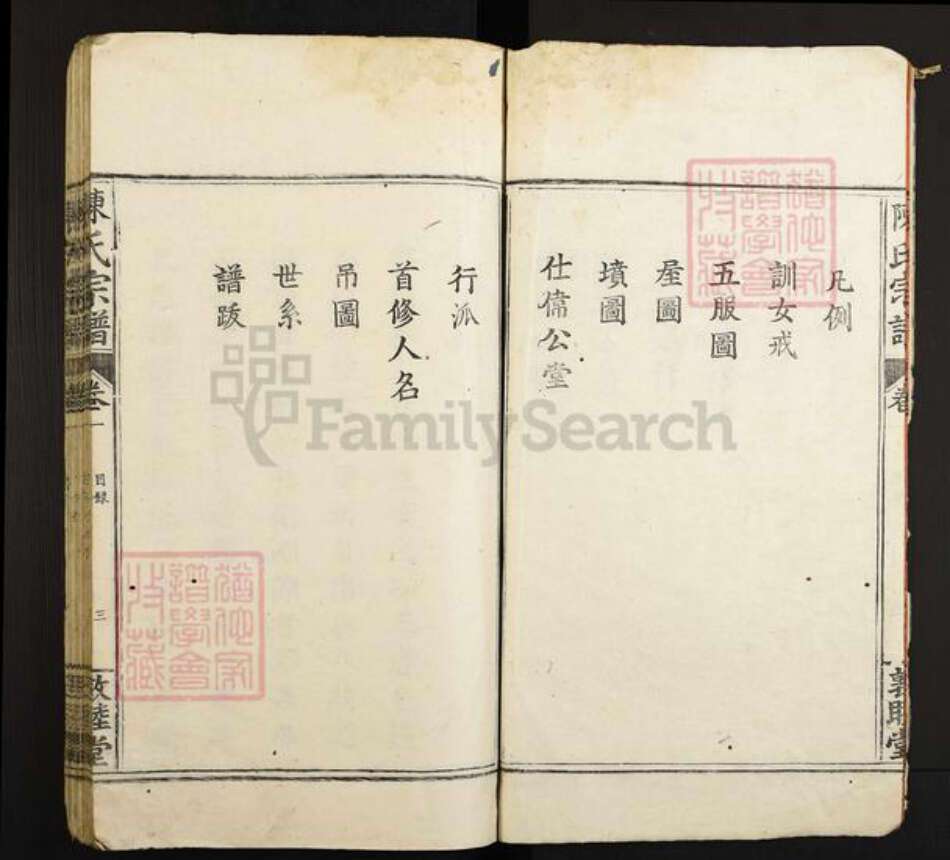 陳氏宗譜
卷
凡例
訓女戒
五服圖
屋圖
墳圖
仕偉公堂
行派
首修人名
吊圖
世系
譜跋
陳氏宗譜
卷一
目錄
三
敦睦堂
譜學會
收藏
FamilySearch